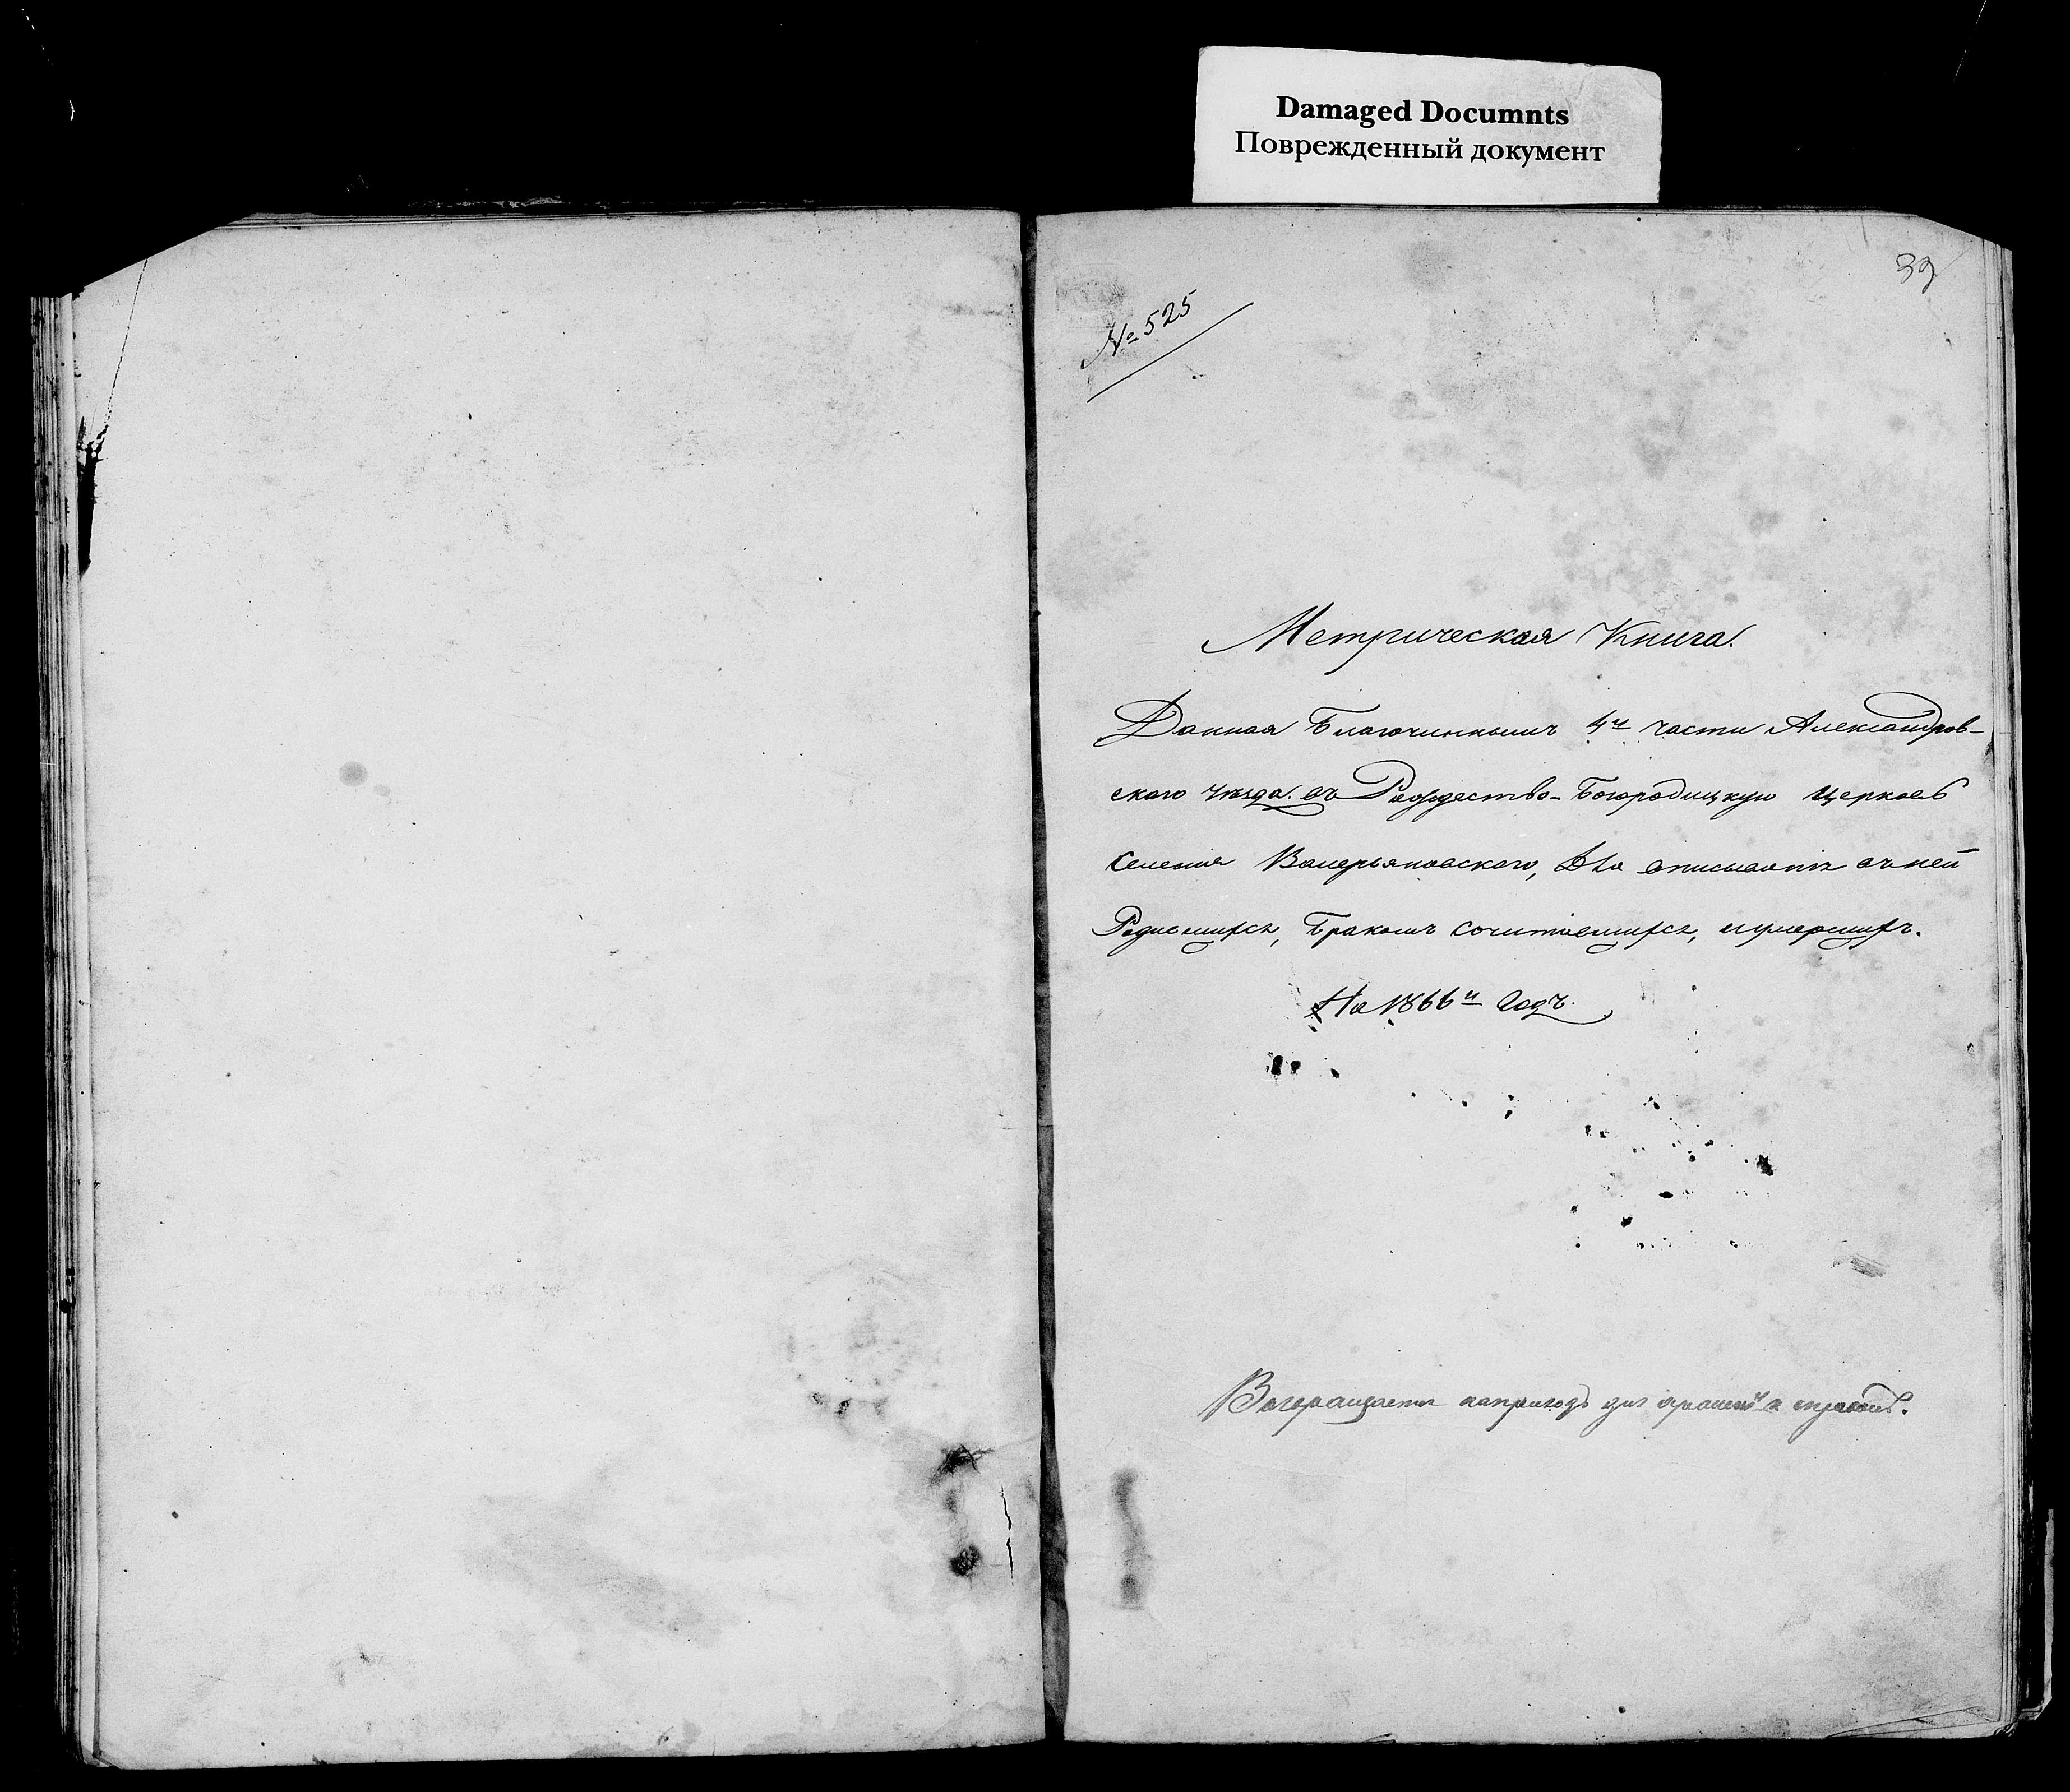 Damaged Documnts
Поврежденный документ
39
№ 525
Метрическая Книга.
Данная Благочиннымъ 4й части Александров-
скаго Уѣзда. въ Рождество-Богородицкую церковь
Селенія Валерьяновскаго, для вписыванія въ ней
Родившихся, Бракомъ сочитавшихся, и умершихъ.
На 1866й Годъ.
Возвращается на приходъ для храненія